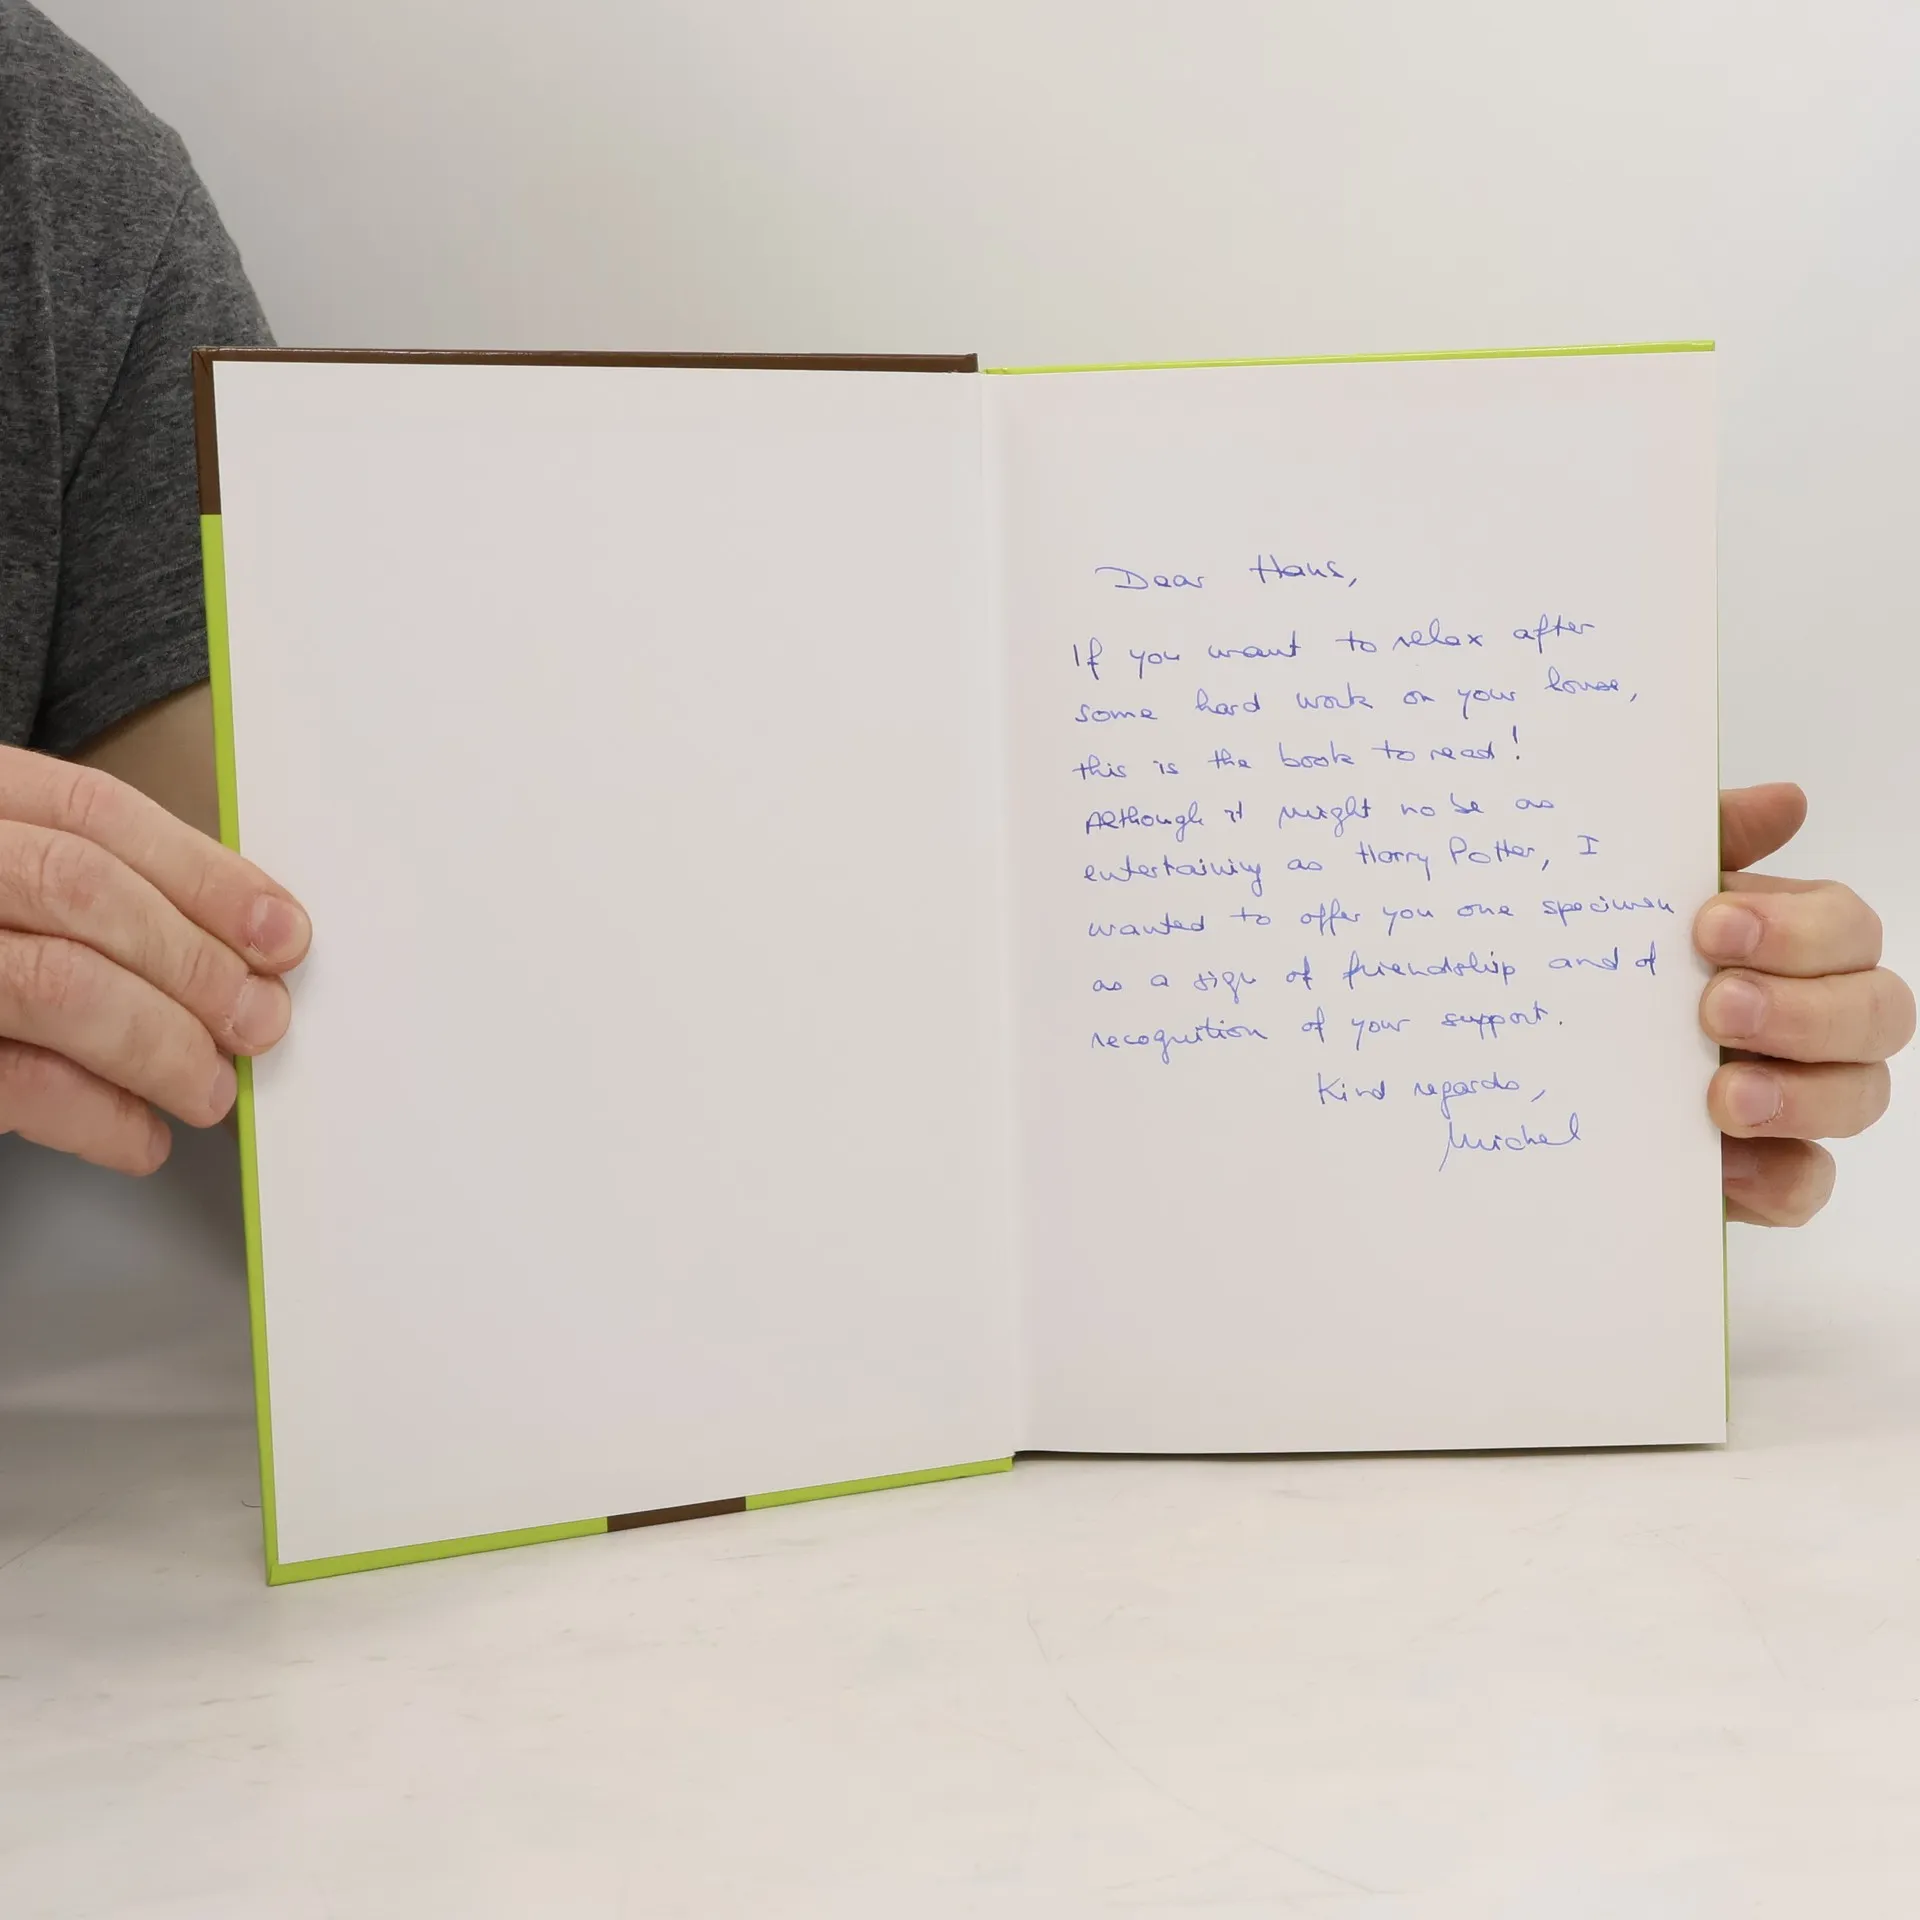 Dear Hans,
If you want to relax after
some hard work on your house,
this is the book to read!
Although it might no be as
entertaining as Harry Potter, I
wanted to offer you one specimen
as a sign of friendship and of
recognition of your support.
Kind regards,
Michel